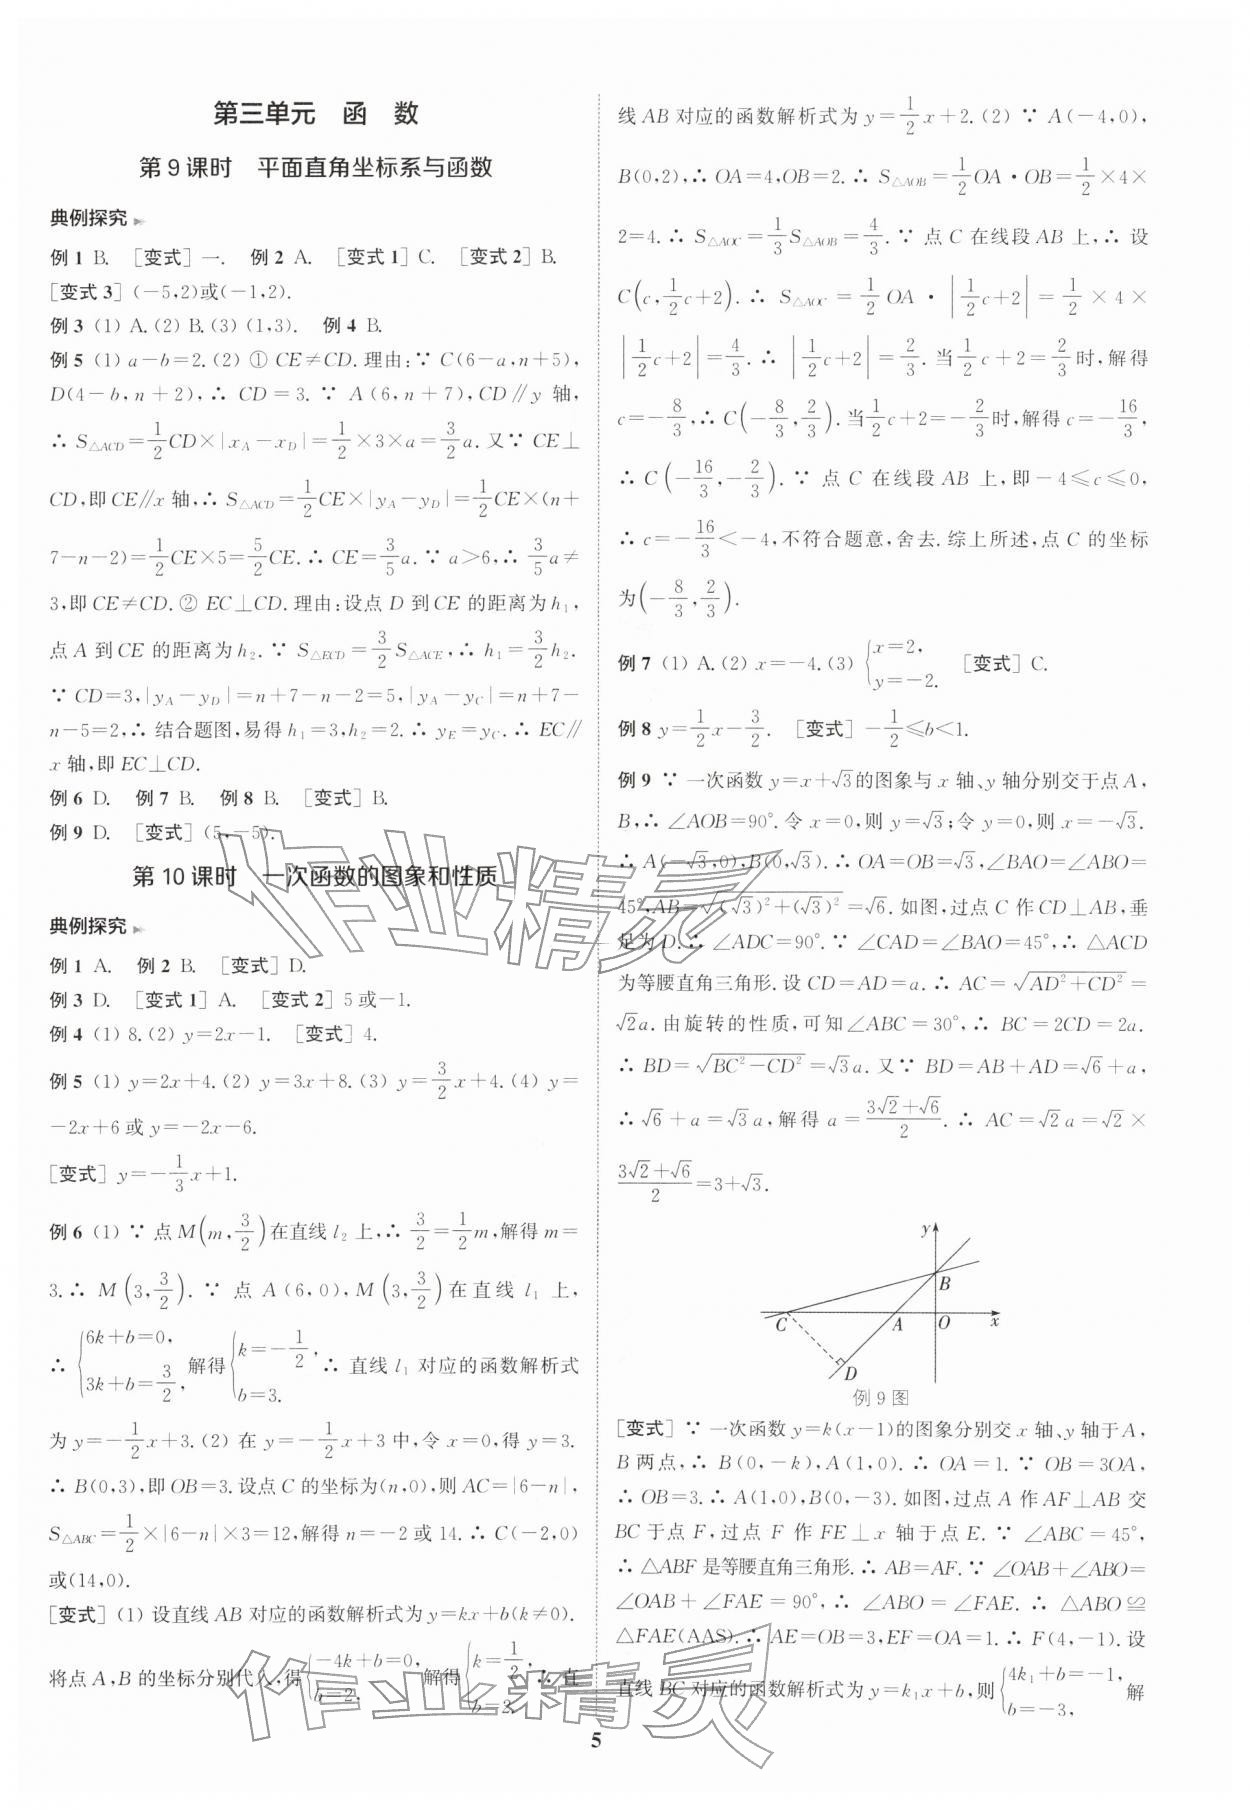 第三单元　函　数
第 9 课时　平面直角坐标系与函数
典例探究
例 1 B. [变式] 一. 例 2 A. [变式 1] C. [变式 2] B.
[变式 3] (-5,2)或(-1,2).
例 3 (1) A. (2) B. (3) (1,3). 例 4 B.
例 5 (1) a-b=2. (2) ① CE≠CD. 理由:∵ C(6-a,n+5),
D(4-b,n+2),∴ CD=3. ∵ A(6,n+7),CD∥y 轴,
∴ S△ACD=1/2CD×|xA-xD|=1/2×3×a=3/2a. 又∵ CE⊥
CD,即 CE∥x 轴,∴ S△ACD=1/2CE×|yA-yD|=1/2CE×(n+
7-n-2)=1/2CE×5=5/2CE. ∴ CE=3/5a. ∵ a>6,∴ 3/5a≠
3,即 CE≠CD. ② EC⊥CD. 理由:设点 D 到 CE 的距离为 h₁,
点 A 到 CE 的距离为 h₂. ∵ S△ECD=3/2S△ACE,∴ h₁=3/2h₂.
∵ CD=3,|yA-yD|=n+7-n-2=5,|yA-yC|=n+7-
n-5=2,∴ 结合题图,易得 h₁=3,h₂=2. ∴ yE=yC. ∴ EC∥
x 轴,即 EC⊥CD.
例 6 D. 例 7 B. 例 8 B. [变式] B.
例 9 D. [变式] (5,-5).
第 10 课时　一次函数的图象和性质
典例探究
例 1 A. 例 2 B. [变式] D.
例 3 D. [变式 1] A. [变式 2] 5 或-1.
例 4 (1) 8. (2) y=2x-1. [变式] 4.
例 5 (1) y=2x+4. (2) y=3x+8. (3) y=3/2x+4. (4) y=
-2x+6 或 y=-2x-6.
[变式] y=-1/3x+1.
例 6 (1) ∵ 点 M(m,3/2)在直线 l₂ 上,∴ 3/2=1/2m,解得 m=
3. ∴ M(3,3/2). ∵ 点 A(6,0),M(3,3/2)在直线 l₁ 上,
∴ {6k+b=0, 3k+b=3/2, 解得 {k=-1/2, b=3. ∴ 直线 l₁ 对应的函数解析式
为 y=-1/2x+3. (2) 在 y=-1/2x+3 中,令 x=0,得 y=3.
∴ B(0,3),即 OB=3. 设点 C 的坐标为(n,0),则 AC=|6-n|,
S△ABC=1/2×|6-n|×3=12,解得 n=-2 或 14. ∴ C(-2,0)
或(14,0).
[变式] (1) 设直线 AB 对应的函数解析式为 y=kx+b(k≠0).
将点 A,B 的坐标分别代入,得 {-4k+b=0, b=2. 解得 {k=1/2, b=2. ∴ 直
线 AB 对应的函数解析式为 y=1/2x+2. (2) ∵ A(-4,0),
B(0,2),∴ OA=4,OB=2. ∴ S△AOB=1/2OA·OB=1/2×4×
2=4. ∴ S△AOC=1/3S△AOB=4/3. ∵ 点 C 在线段 AB 上,∴ 设
C(c,1/2c+2). ∴ S△AOC=1/2OA·|1/2c+2|=1/2×4×
|1/2c+2|=4/3. ∴ |1/2c+2|=2/3. 当1/2c+2=2/3时,解得
c=-8/3,∴ C(-8/3,2/3). 当1/2c+2=-2/3时,解得 c=-16/3,
∴ C(-16/3,-2/3). ∵ 点 C 在线段 AB 上,即-4≤c≤0,
∴ c=-16/3<-4,不符合题意,舍去. 综上所述,点 C 的坐标
为(-8/3,2/3).
例 7 (1) A. (2) x=-4. (3) {x=2, y=-2. [变式] C.
例 8 y=1/2x-3/2. [变式] -1/2≤b<1.
例 9 ∵ 一次函数 y=x+√3的图象与 x 轴、y 轴分别交于点 A,
B,∴ ∠AOB=90°. 令 x=0,则 y=√3;令 y=0,则 x=-√3.
∴ A(-√3,0),B(0,√3). ∴ OA=OB=√3,∠BAO=∠ABO=
45°,AB=√((√3)²+(√3)²)=√6. 如图,过点 C 作 CD⊥AB,垂
足为 D. ∴ ∠ADC=90°. ∵ ∠CAD=∠BAO=45°,∴ △ACD
为等腰直角三角形. 设 CD=AD=a. ∴ AC=√(AD²+CD²)=
√2a. 由旋转的性质,可知∠ABC=30°,∴ BC=2CD=2a.
∴ BD=√(BC²-CD²)=√3a. 又∵ BD=AB+AD=√6+a,
∴ √6+a=√3a,解得 a=(3√2+√6)/2. ∴ AC=√2a=√2×
(3√2+√6)/2=3+√3.
y
B
C
A
O
x
D
例 9 图
[变式] ∵ 一次函数 y=k(x-1)的图象分别交 x 轴、y 轴于 A,
B 两点,∴ B(0,-k),A(1,0). ∴ OA=1. ∵ OB=3OA,
∴ OB=3. ∴ A(1,0),B(0,-3). 如图,过点 A 作 AF⊥AB 交
BC 于点 F,过点 F 作 FE⊥x 轴于点 E. ∵ ∠ABC=45°,
∴ △ABF 是等腰直角三角形. ∴ AB=AF. ∵ ∠OAB+∠ABO=
∠OAB+∠FAE=90°,∴ ∠ABO=∠FAE. ∴ △ABO≌
△FAE(AAS). ∴ AE=OB=3,EF=OA=1. ∴ F(4,-1). 设
直线 BC 对应的函数解析式为 y=k₁x+b,则 {4k₁+b=-1, b=-3, 解
5
作业精灵
作业精灵